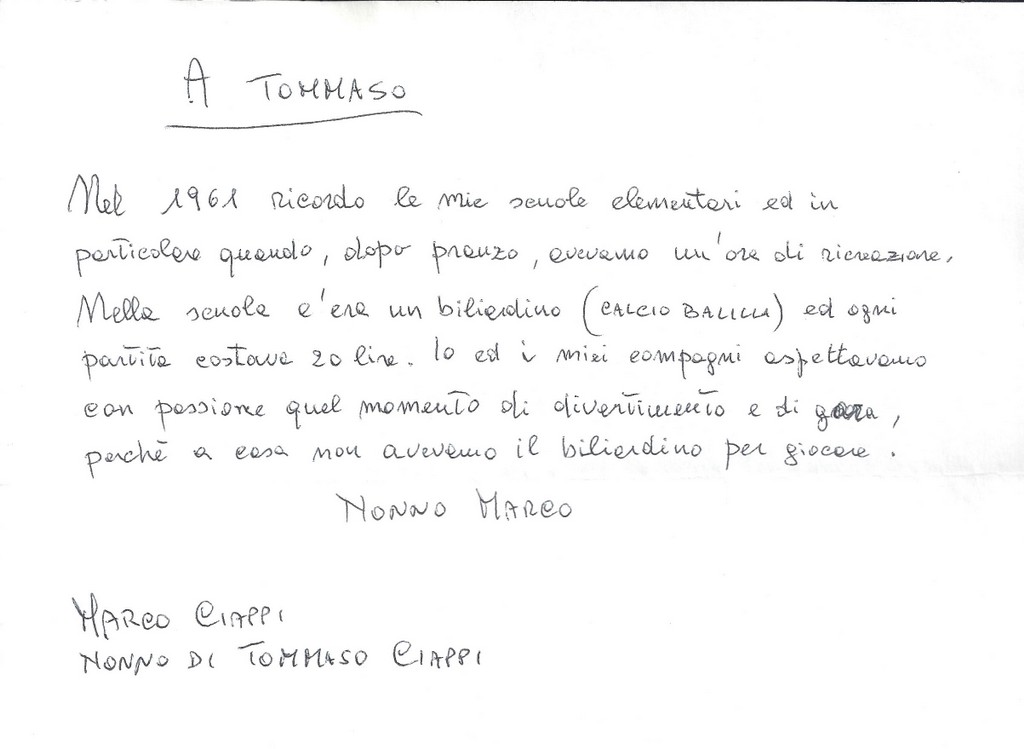 A TOMMASO
Nel 1961 ricordo le mie scuole elementari ed in
particolare quando, dopo pranzo, avevamo un'ora di ricreazione.
Nella scuola c'era un biliardino (CALCIO BALILLA) ed ogni
partita costava 20 lire. Io ed i miei compagni aspettavamo
con passione quel momento di divertimento e di gara,
perchè a casa non avevamo il biliardino per giocare.
NONNO MARCO
MARCO CIAPPI
NONNO DI TOMMASO CIAPPI